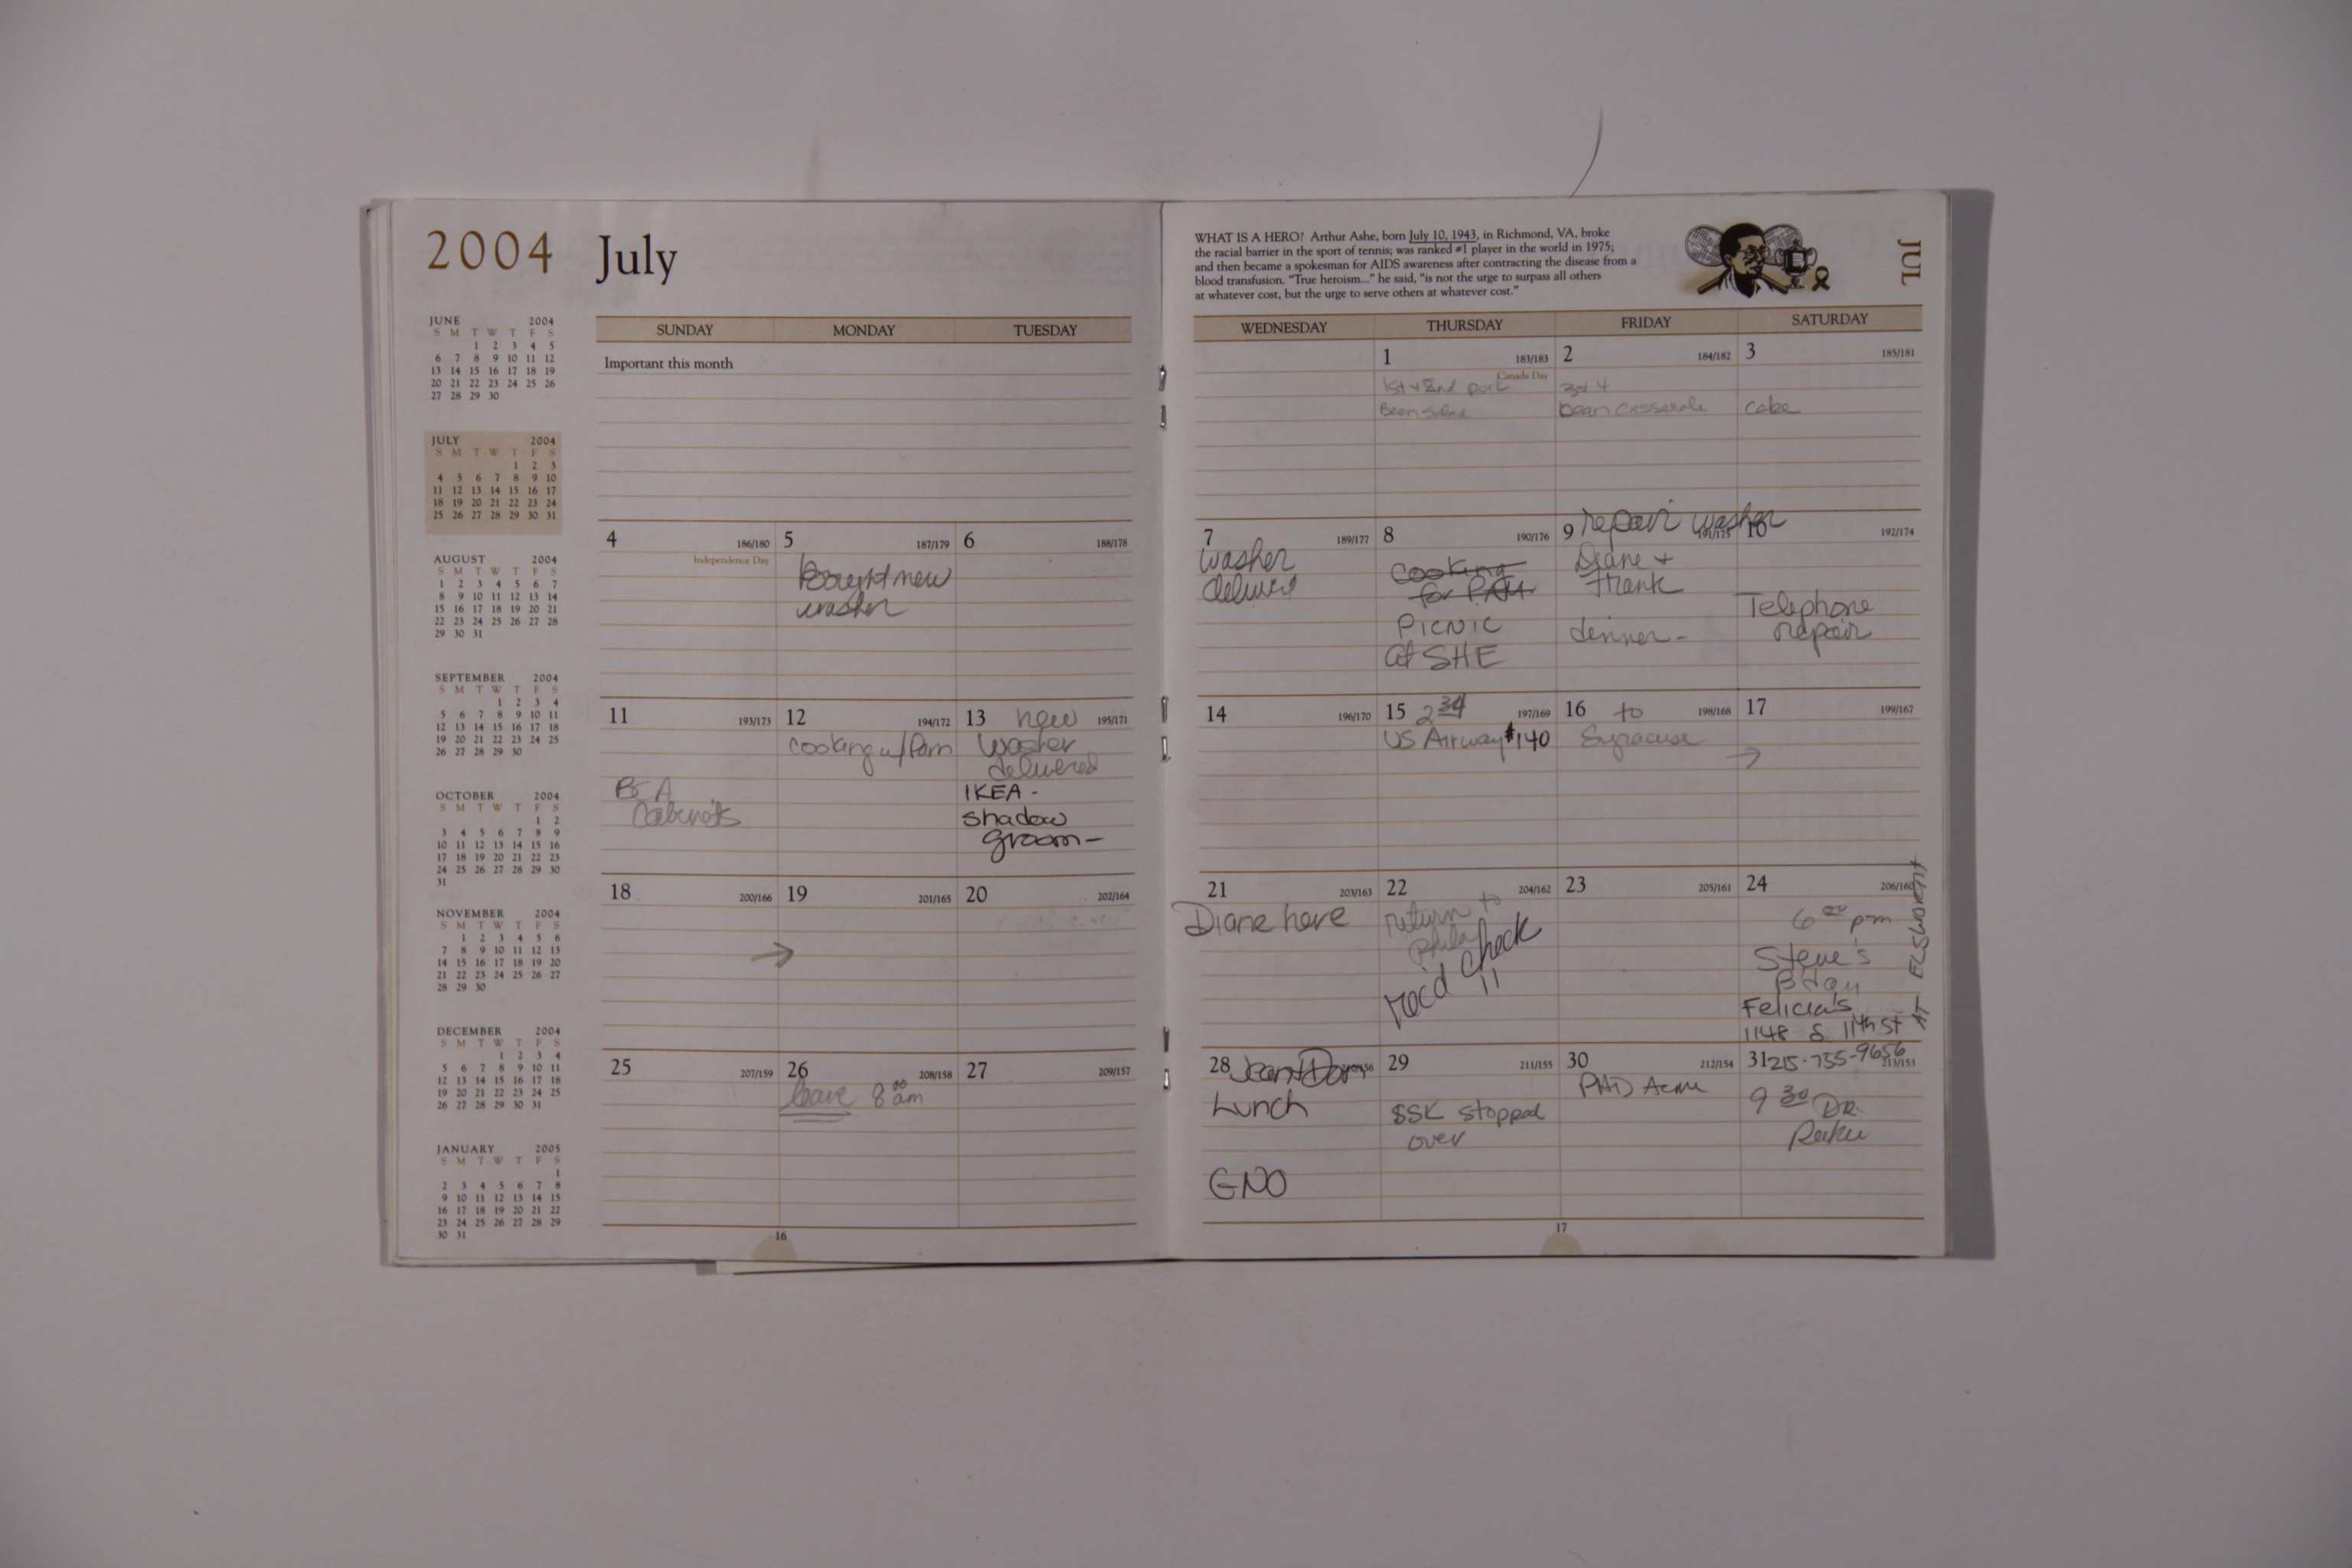 2004 July
JUNE 2004
S M T W T F S
1 2 3 4 5
6 7 8 9 10 11 12
13 14 15 16 17 18 19
20 21 22 23 24 25 26
27 28 29 30
JULY 2004
S M T W T F S
1 2 3
4 5 6 7 8 9 10
11 12 13 14 15 16 17
18 19 20 21 22 23 24
25 26 27 28 29 30 31
AUGUST 2004
S M T W T F S
1 2 3 4 5 6 7
8 9 10 11 12 13 14
15 16 17 18 19 20 21
22 23 24 25 26 27 28
29 30 31
SEPTEMBER 2004
S M T W T F S
1 2 3 4
5 6 7 8 9 10 11
12 13 14 15 16 17 18
19 20 21 22 23 24 25
26 27 28 29 30
OCTOBER 2004
S M T W T F S
1 2
3 4 5 6 7 8 9
10 11 12 13 14 15 16
17 18 19 20 21 22 23
24 25 26 27 28 29 30
31
NOVEMBER 2004
S M T W T F S
1 2 3 4 5 6
7 8 9 10 11 12 13
14 15 16 17 18 19 20
21 22 23 24 25 26 27
28 29 30
DECEMBER 2004
S M T W T F S
1 2 3 4
5 6 7 8 9 10 11
12 13 14 15 16 17 18
19 20 21 22 23 24 25
26 27 28 29 30 31
JANUARY 2005
S M T W T F S
1
2 3 4 5 6 7 8
9 10 11 12 13 14 15
16 17 18 19 20 21 22
23 24 25 26 27 28 29
30 31
SUNDAY MONDAY TUESDAY
Important this month
4 186/180 5 187/179 6 188/178
Independence Day
Bought new
washer
11 193/173 12 194/172 13 new 195/171
cooking w/Pam
washer
delivered
IKEA -
shadow
groom-
Cabinets
18 200/166 19 201/165 20 202/164
→
25 207/159 26 208/158 27 209/157
leave 8 00 am
16
WHAT IS A HERO? Arthur Ashe, born July 10, 1943, in Richmond, VA, broke
the racial barrier in the sport of tennis; was ranked #1 player in the world in 1975;
and then became a spokesman for AIDS awareness after contracting the disease from a
blood transfusion. "True heroism..." he said, "is not the urge to surpass all others
at whatever cost, but the urge to serve others at whatever cost."
JUL
WEDNESDAY THURSDAY FRIDAY SATURDAY
1 183/183 2 184/182 3 185/181
Canada Day
1st + 2nd
Bean Salad
3rd 4
bean casserole
cake
7 189/177 8 190/176 9 191/175 10 192/174
washer
cooking
for PAM
PICNIC
at SHE
repair washer
Diane +
Frank
dinner-
Telephone
repair
14 196/170 15 2 34 197/169 16 to 198/168 17 199/167
US Airway $140
Syracuse
→
21 203/163 22 204/162 23 205/161 24 206/160
Diane here
return to
phila
rec'd check
11
6 00 pm
Steve's
Bday
Felicia's
1148 S 11th St
AT ELSWORTH
28 29 211/155 30 212/154 31 215-755-9656 213/153
Lunch
GNO
SSK stopped
over
9 30 DR.
17